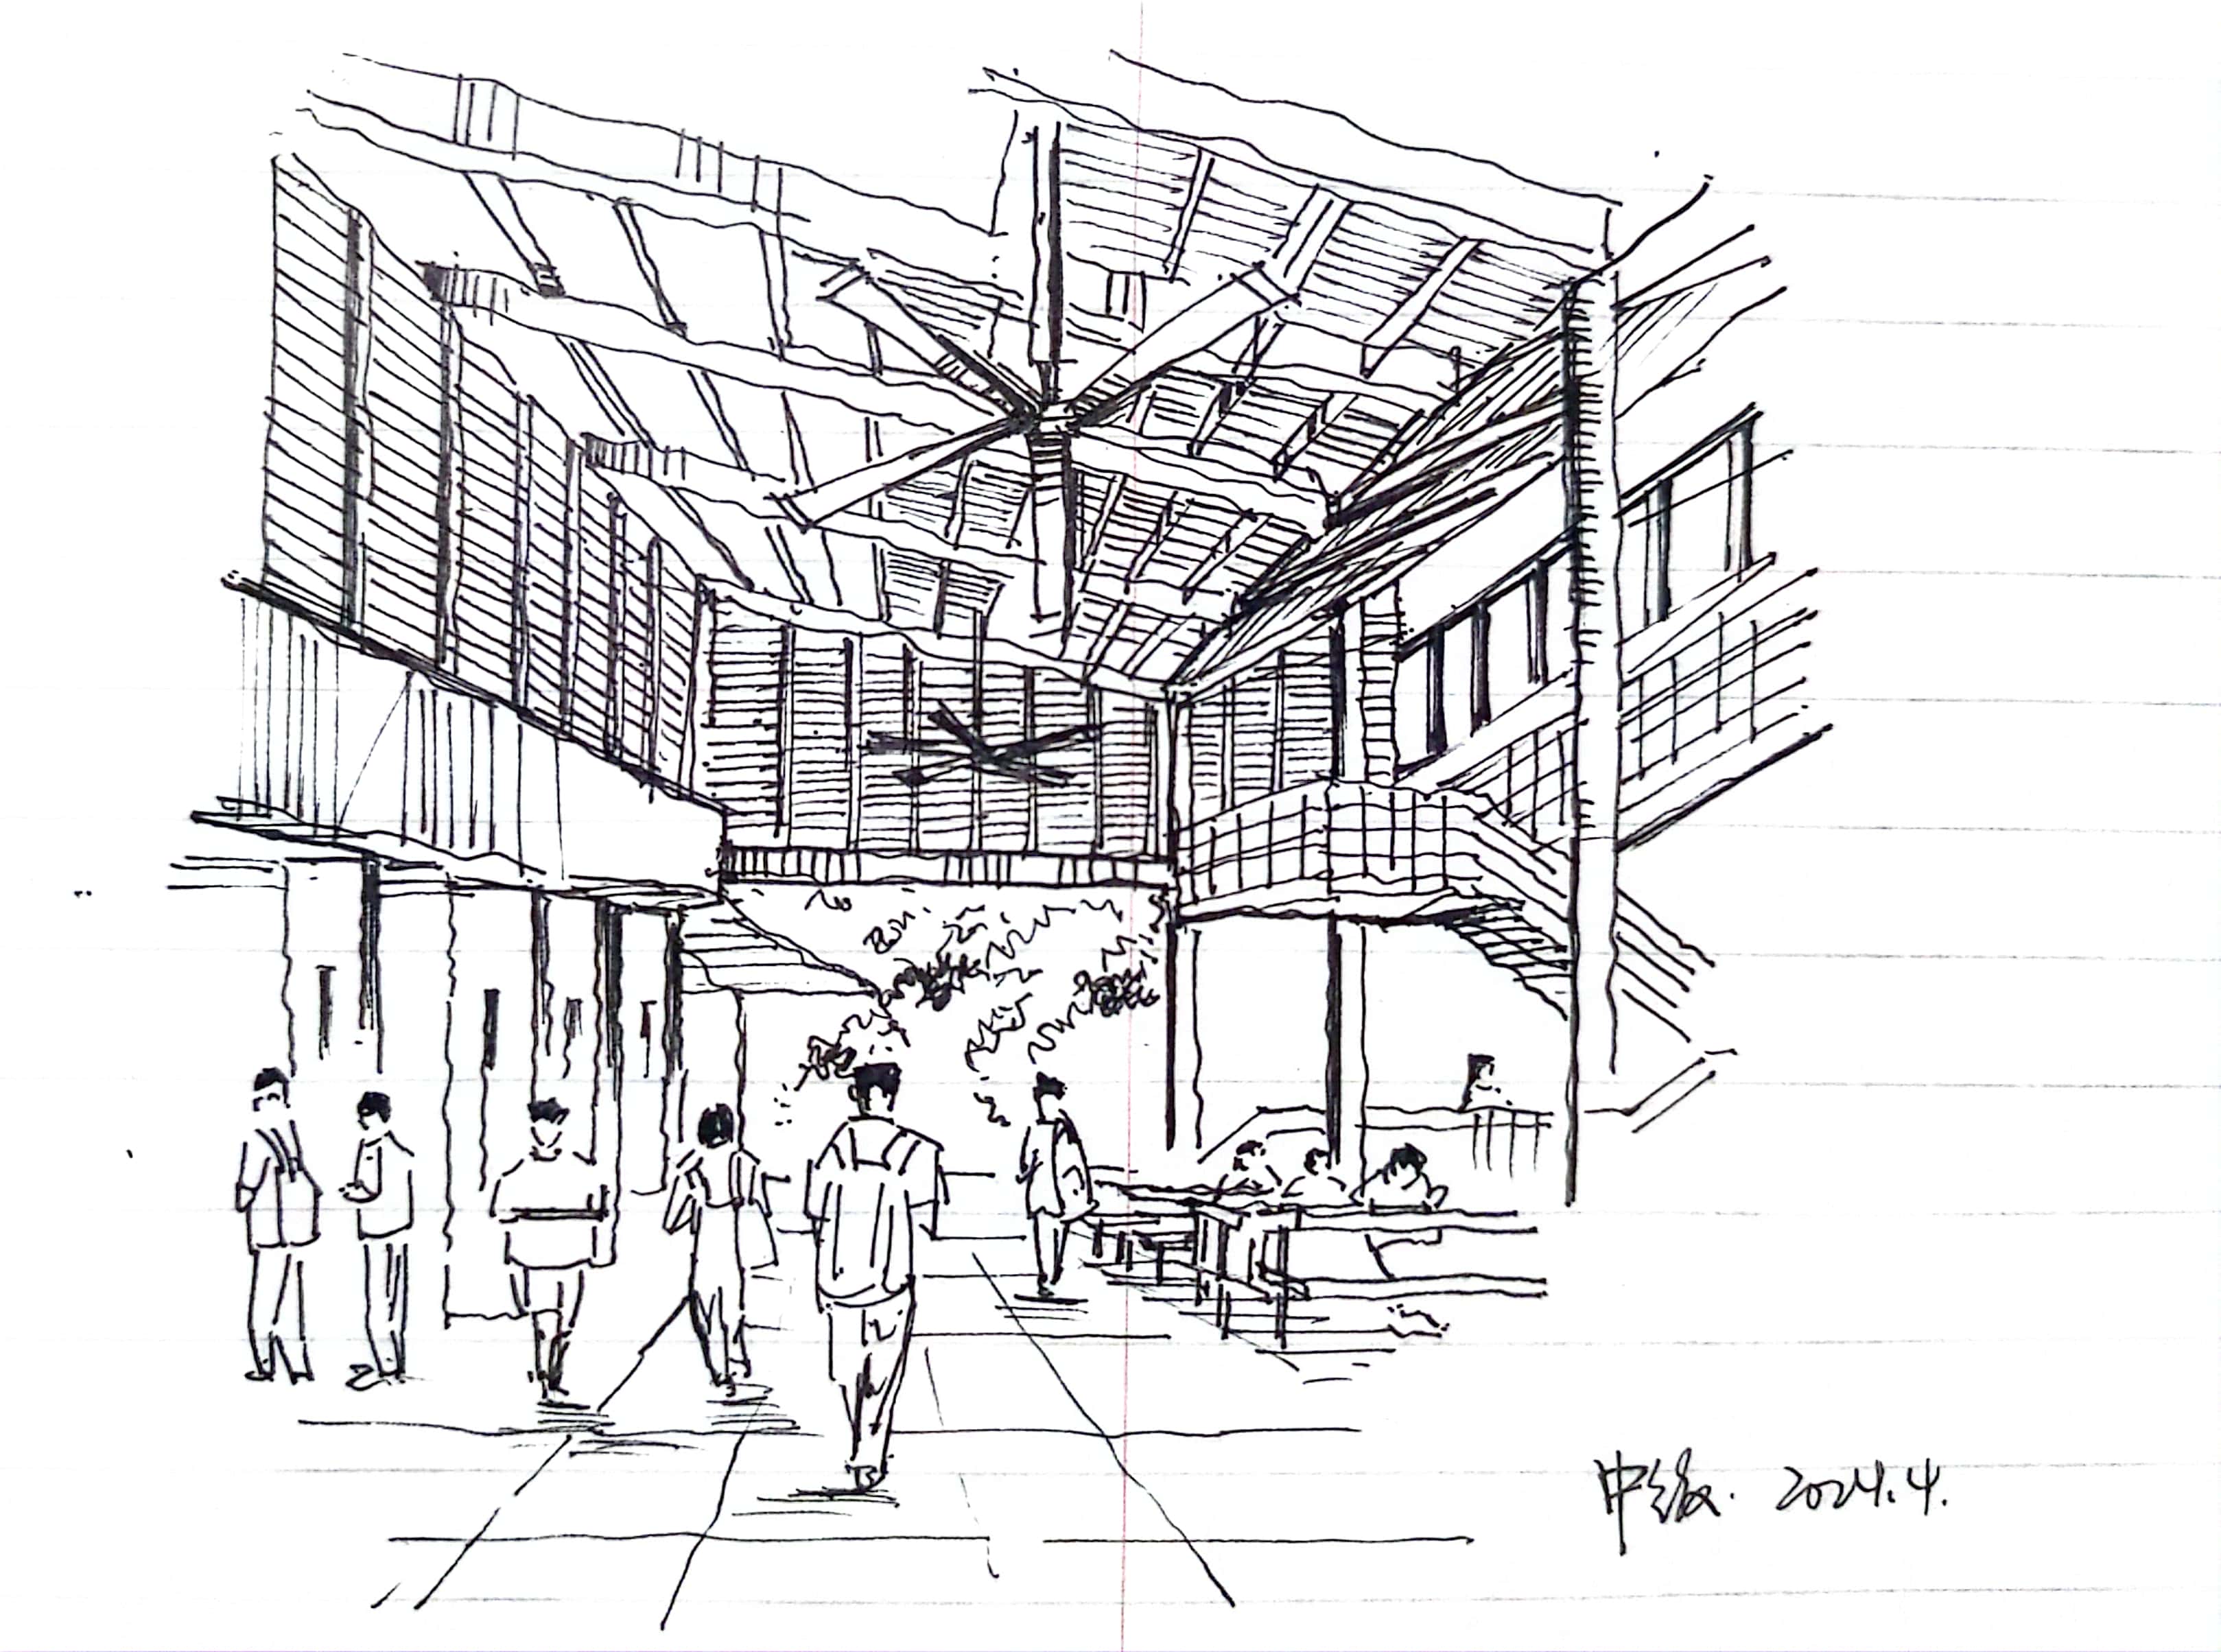 中级. 2024.4.